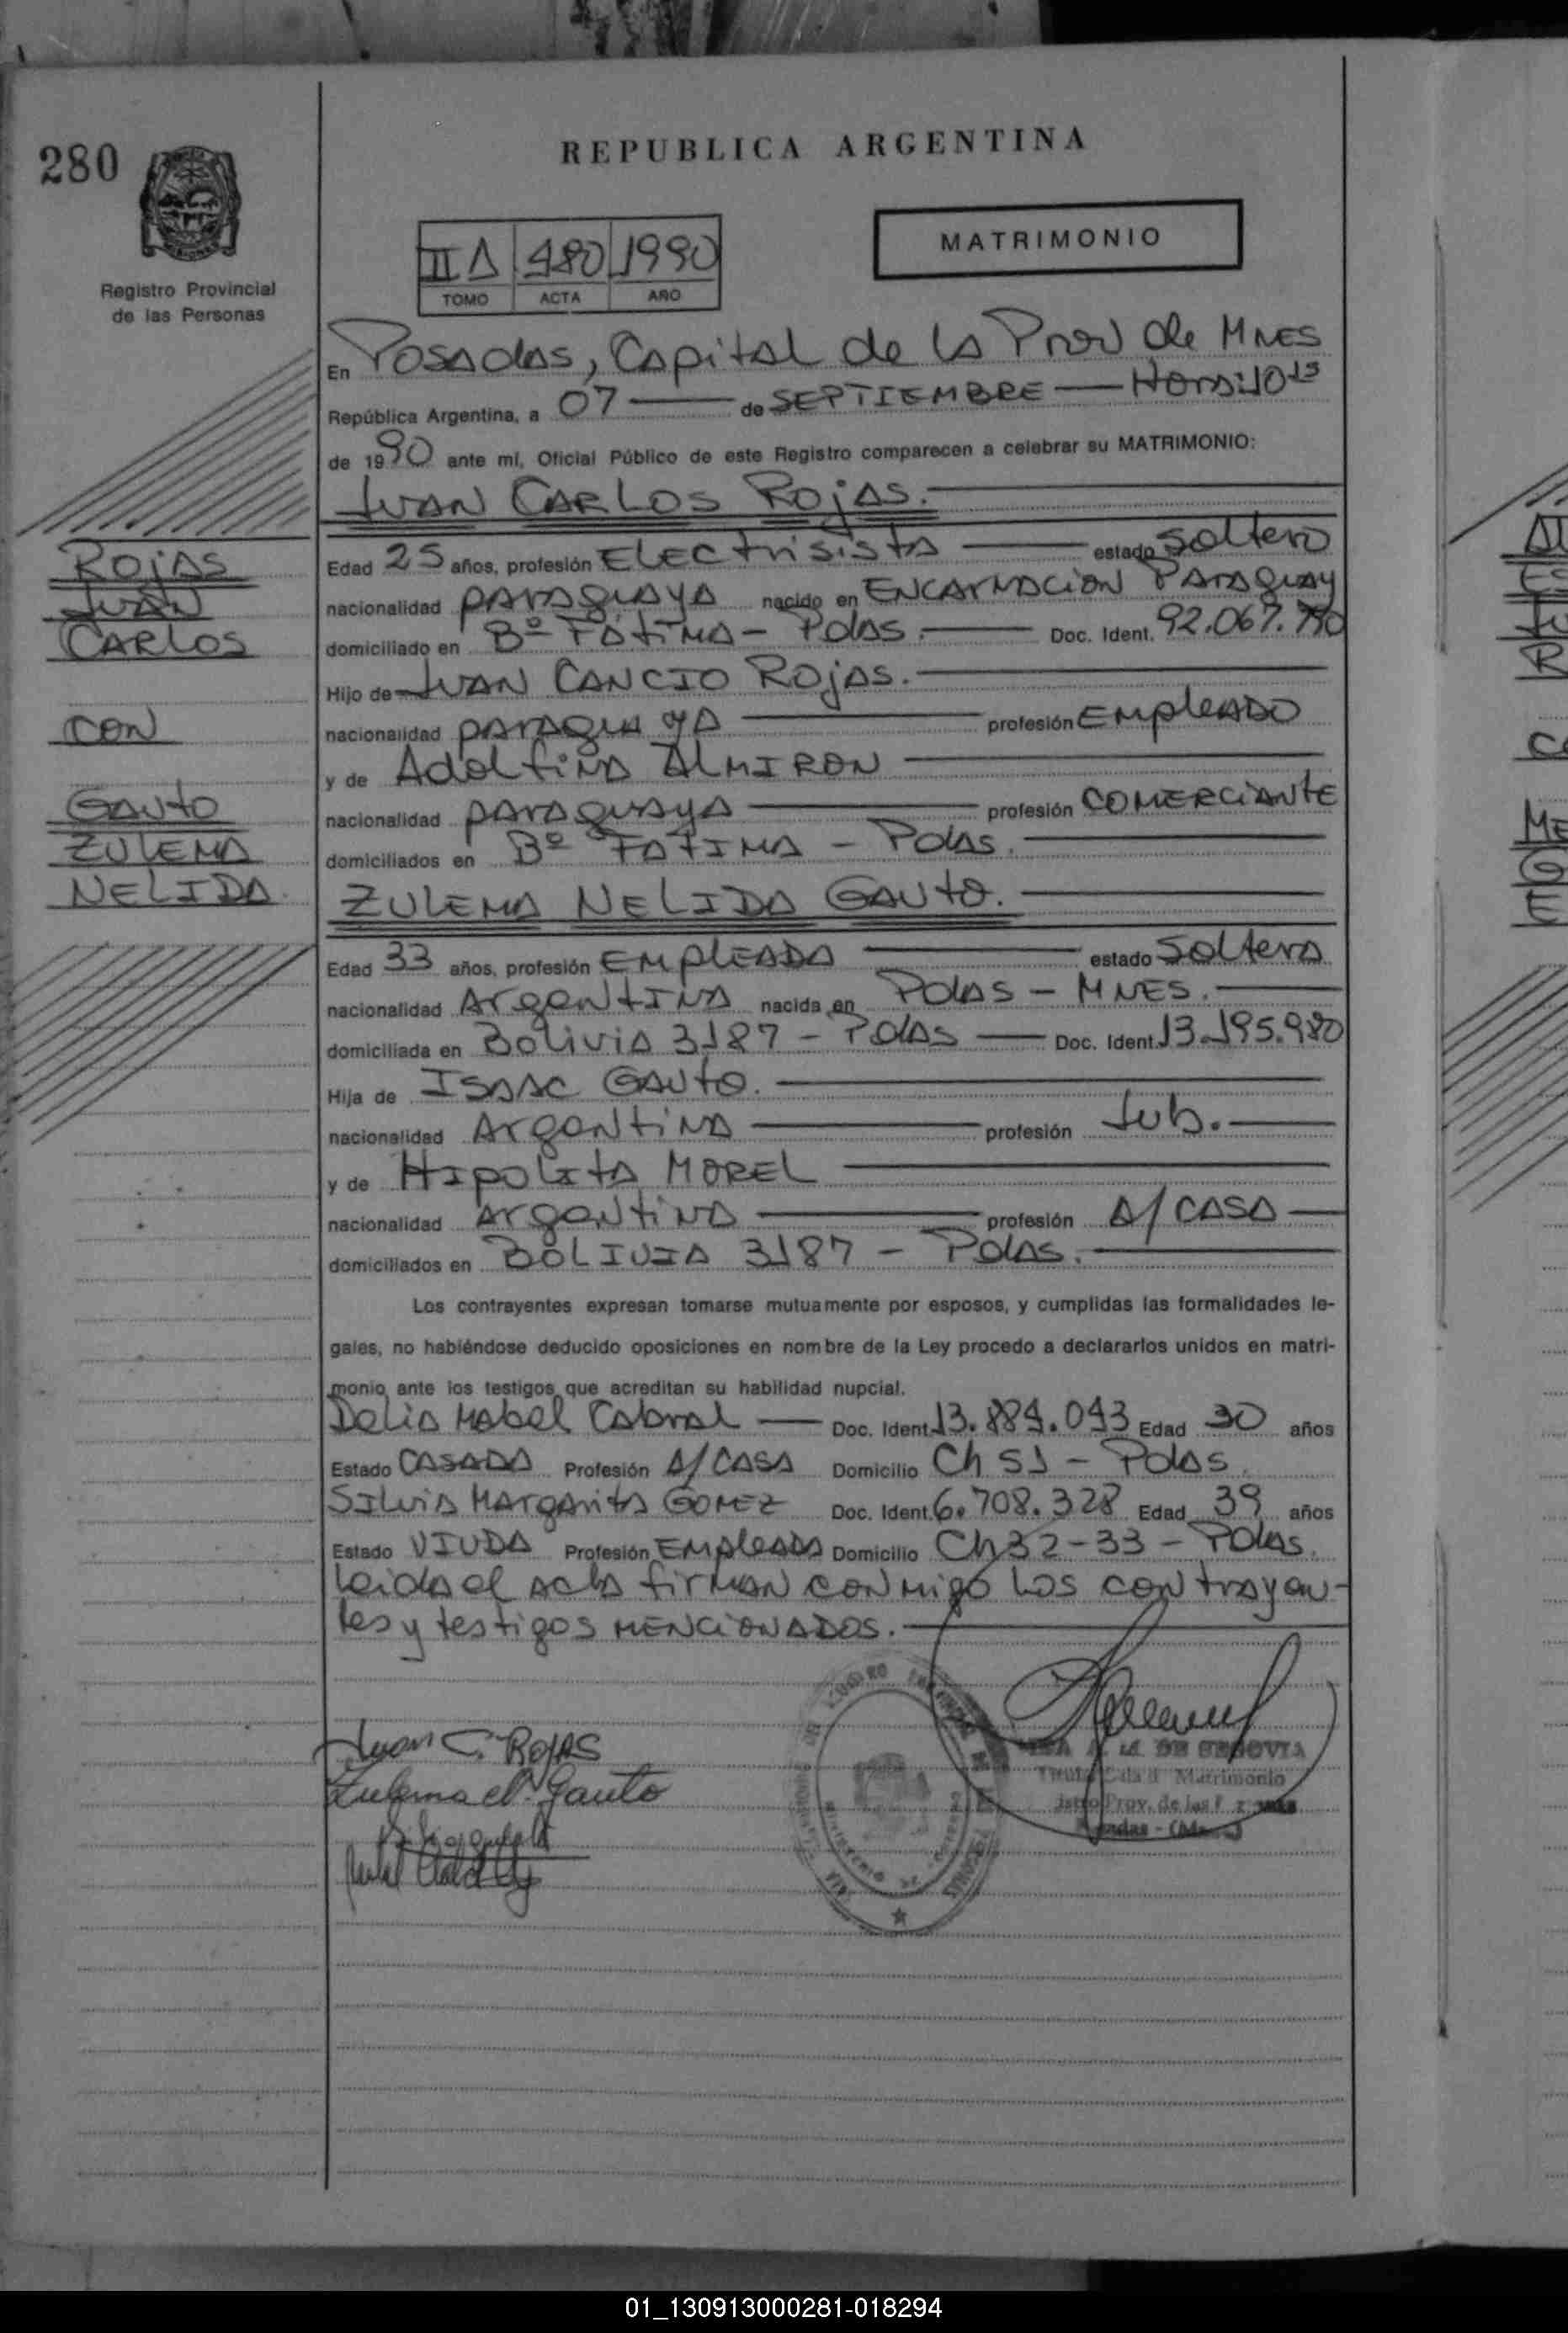 280
REPUBLICA ARGENTINA
MATRIMONIO
II A 480 1990
TOMO ACTA AÑO
Registro Provincial
de las Personas
En Posadas, Capital de la Prov de MNES
República Argentina, a 07 de SEPTIEMBRE Hora: 10 15
de 1990 ante mí, Oficial Público de este Registro comparecen a celebrar su MATRIMONIO:
JUAN CARLOS ROJAS.
ROJAS
JUAN
CARLOS
CON
GAUTO
ZULEMA
NELIDA.
Edad 25 años, profesión ELECtrisista estado Soltero
nacionalidad PARAGUAYA nacido en ENCARNACION PARAGUAY
domiciliado en Bº FATIMA - Pdas. Doc. Ident. 92.067.790
Hijo de JUAN CANCIO ROJAS.
nacionalidad PARAGUAYA profesión EMPLEADO
y de Adolfina ALMIRON
nacionalidad PARAGUAYA profesión COMERCIANTE
domiciliados en Bº FATIMA - Pdas.
ZULEMA NELIDA GAUTO.
Edad 33 años, profesión EMPLEADA estado Soltera
nacionalidad Argentina nacida en Pdas - MNES.
domiciliada en Bolivia 3187 - Pdas Doc. Ident. 13.195.980
Hija de ISAAC GAUTO.
nacionalidad Argentina profesión Jub.
y de HIPOLITA MOREL
nacionalidad Argentina profesión A/ CASA
domiciliados en BOLIVIA 3187 - Pdas.
Los contrayentes expresan tomarse mutuamente por esposos, y cumplidas las formalidades le-
gales, no habiéndose deducido oposiciones en nombre de la Ley procedo a declararlos unidos en matri-
monio ante los testigos que acreditan su habilidad nupcial.
Delia Mabel Cabral Doc. Ident. 13.884.043 Edad 30 años
Estado CASADA Profesión A/ CASA Domicilio Ch 51 - Pdas.
SILVIA MARGARITA GOMEZ Doc. Ident. 6.708.328 Edad 39 años
Estado VIUDA Profesión EMPLEADA Domicilio Ch 32-33 - Pdas.
Leida el Acta firman conmigo los contrayen-
tes y testigos MENCIONADOS.
Juan C. ROJAS
Zulema N. Gauto
DE SEGOVIA
Titular Sala d Matrimonio
Prov. de las
01_130913000281-018294